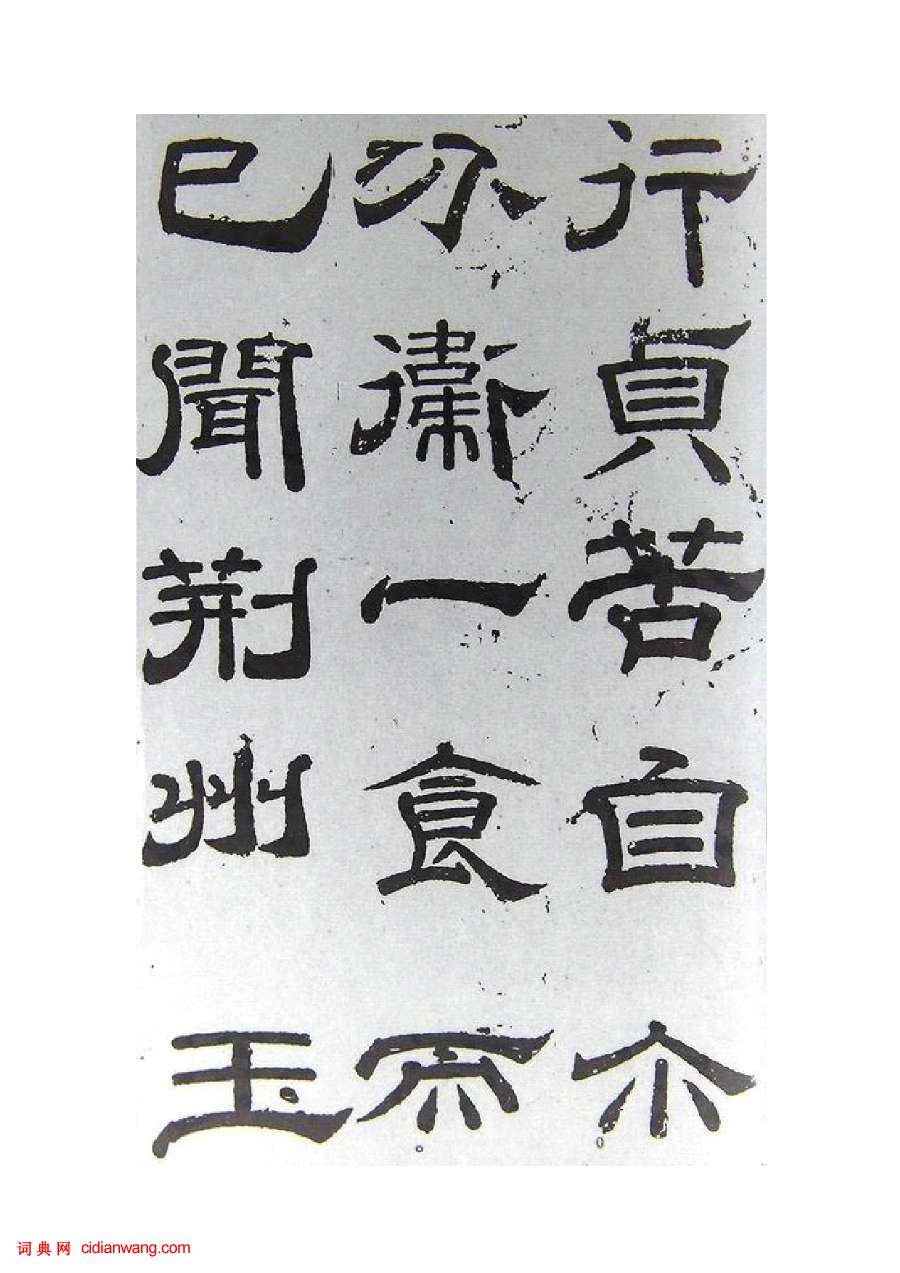 行貞苦自尒
分衛一食而
已聞荆州玉
词典网 cidianwang.com